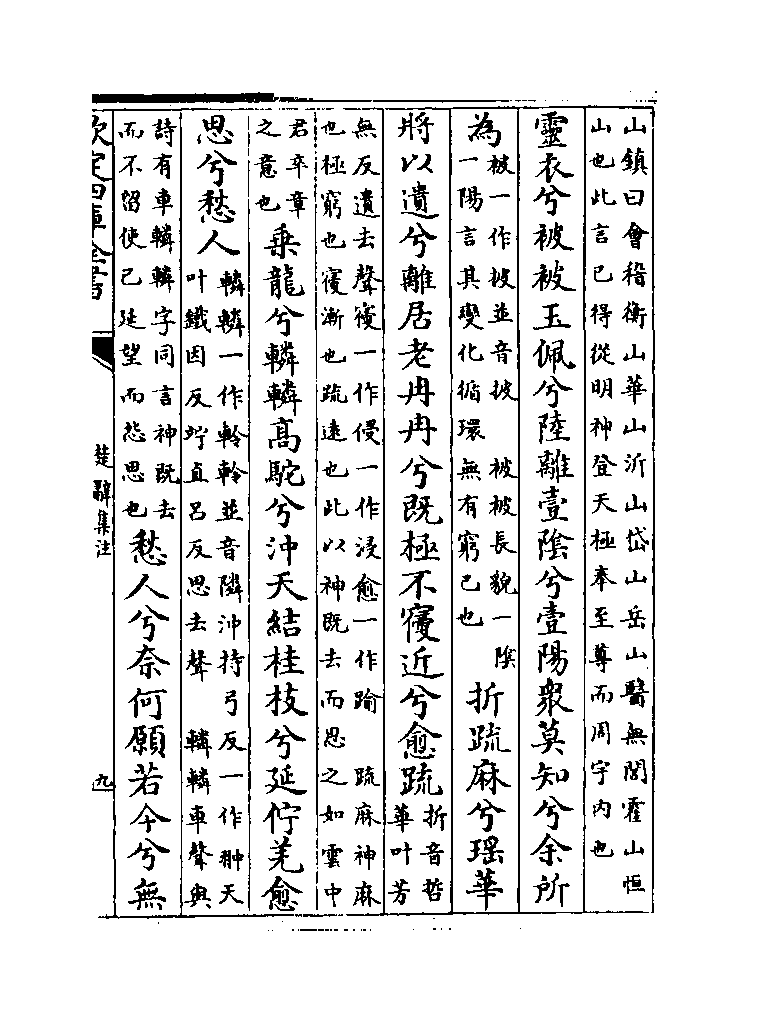 山鎮曰會稽衡山華山沂山岱山岳山醫無閭霍山恒
山也此言已得從明神登天極奉至尊而周宇内也
靈衣兮被被玉佩兮陸離壹陰兮壹陽衆莫知兮余所
為
被一作披並音披　被被長貌一陰
一陽言其變化循環無有窮已也
折疏麻兮瑶華
將以遺兮離居老冉冉兮既極不寖近兮愈疏
折音哲
華叶芳
無反遺去聲寖一作侵一作浸愈一作踰　疏麻神麻
也極窮也寖漸也疏逺也此以神既去而思之如雲中
君卒章
之意也
乗龍兮轔轔髙駝兮沖天結桂枝兮延佇羌愈
思兮愁人
轔轔一作軨軨並音隣沖持弓反一作翀天
叶鐵因反竚直吕反思去聲　轔轔車聲與
詩有車轔轔字同言神既去
而不留使已延望而愁思也
愁人兮奈何願若今兮無
欽定四庫全書
楚辭集注
九